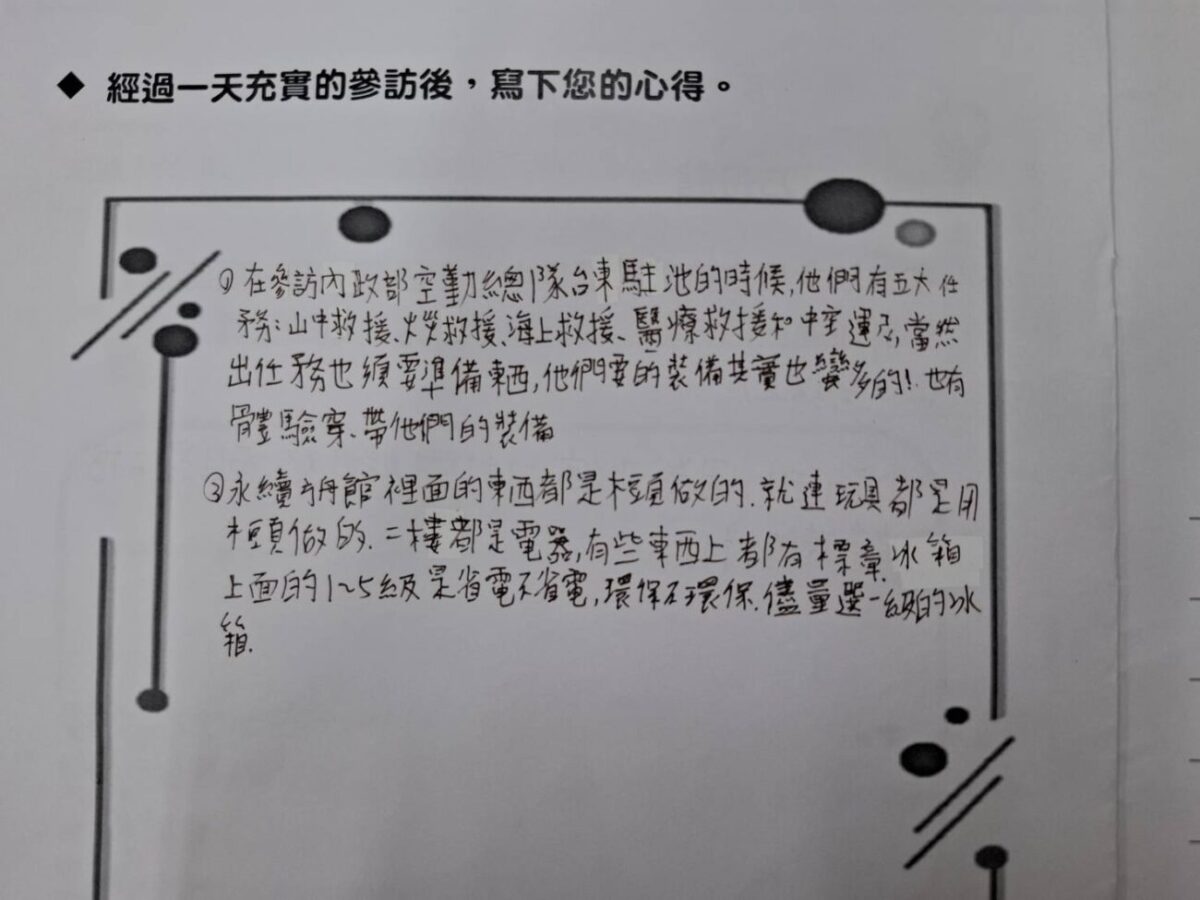 ◆ 經過一天充實的參訪後，寫下您的心得。
① 在參訪內政部空勤總隊台東駐池的時候,他們有五大任
務:山中救援、火災救援、海上救援、醫療救援和中空運送,當然
出任務也須要準備東西,他們要的裝備其實也蠻多的!.也有
體驗穿、帶他們的裝備
③永續方舟館裡面的東西都是木頭做的.就連玩具都是用
木頭做的.二樓都是電器,有些東西上都有標章.冰箱
上面的1~5級是省電不省電,環保不環保.儘量選一級的冰
箱.